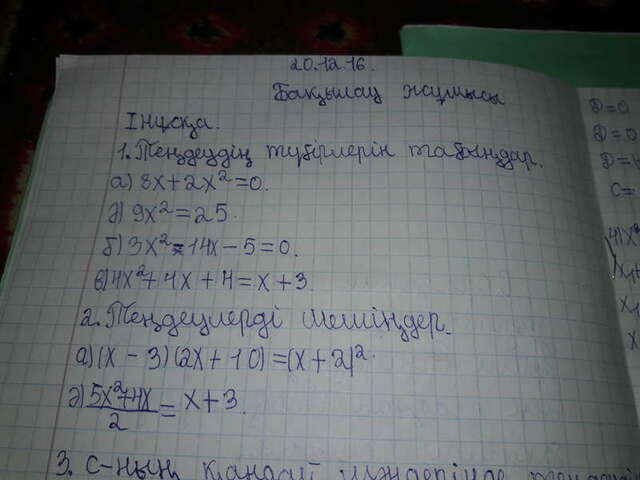 20.12.16.
Бақылау жұмысы
I нұсқа.
1. Теңдеудің түбірлерін табыңдар.
а) 8x+2x²=0.
ә) 9x²=25.
б) 3x²-14x-5=0.
в) 4x²+4x+4=x+3.
2. Теңдеулерді шешіңдер.
а) (x-3)(2x+10)=(x+2)²
ә) 5x²+4x/2=x+3.
3. с-ның қандай мәндерінде
D=0
D=0
D=
c=
4) x²
x₁
x